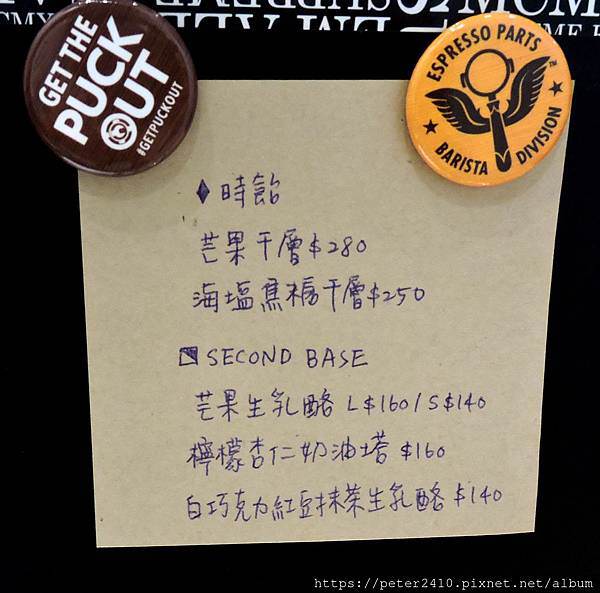 GET THE
PUCK
OUT
#GETPUCKOUT
ESPRESSO PARTS
BARISTA DIVISION
◆時飴
芒果千層$280
海塩焦糖千層$250
SECOND BASE
芒果生乳酪 L$160/S$140
檸檬杏仁奶油塔 $160
白巧克力紅豆抹茶生乳酪 $140
https://peter2410.pixnet.net/album